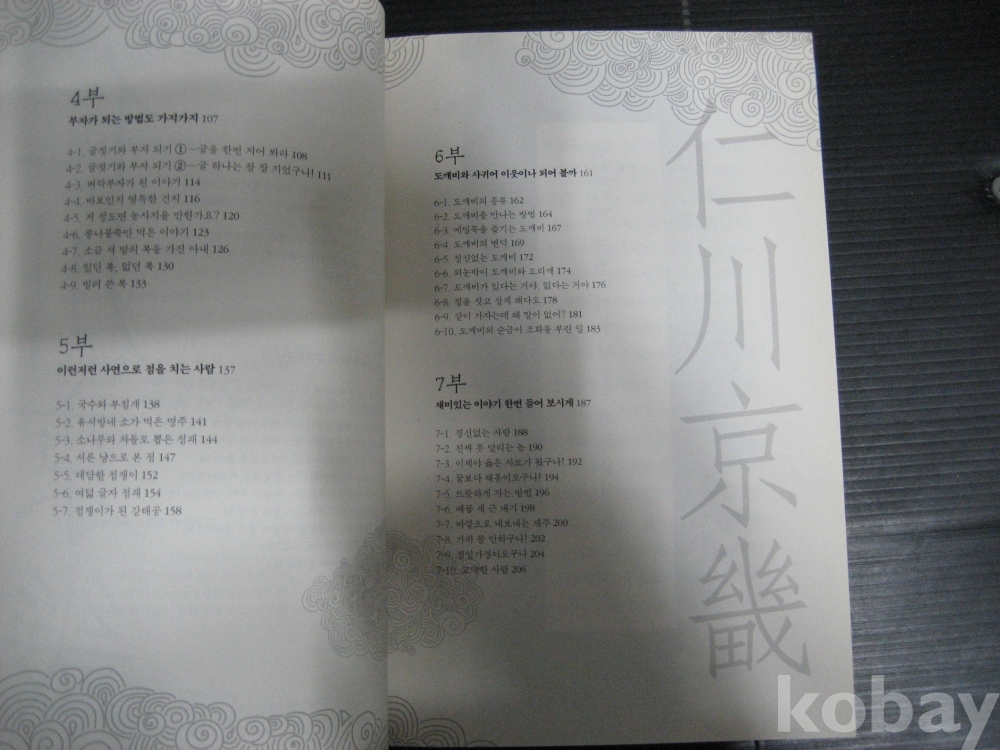 4부
부자가 되는 방법도 가지가지 107
4-1. 글짓기와 부자 되기 ①－글을 한번 지어 봐라 108
4-2. 글짓기와 부자 되기 ②－글 하나는 참 잘 지었구나! 111
4-3. 벼락부자가 된 이야기 114
4-4. 바보인지 영특한 건지 116
4-5. 저 정도면 농사지을 만한가요? 120
4-6. 콩나물죽만 먹은 이야기 123
4-7. 소금 서 말의 복을 가진 아내 126
4-8. 있던 복, 없던 복 130
4-9. 빌려 쓴 복 133
5부
이런저런 사연으로 점을 치는 사람 137
5-1. 국수와 부침개 138
5-2. 유서방네 소가 먹은 명주 141
5-3. 소나무와 차돌로 뽑은 점괘 144
5-4. 서른 냥으로 본 점 147
5-5. 대담한 점쟁이 152
5-6. 여덟 글자 점괘 154
5-7. 점쟁이가 된 강태공 158
6부
도깨비와 사귀어 이웃이나 되어 볼까 161
6-1. 도깨비의 종류 162
6-2. 도깨비를 만나는 방법 164
6-3. 메밀묵을 즐기는 도깨비 167
6-4. 도깨비의 변덕 169
6-5. 정신없는 도깨비 172
6-6. 외눈박이 도깨비와 도리깨 174
6-7. 도깨비가 있다는 거야, 없다는 거야 176
6-8. 집을 짓고 살게 해다오 178
6-9. 같이 사자는데 왜 말이 없어? 181
6-10. 도깨비의 순금이 조화를 부린 일 183
7부
재미있는 이야기 한번 들어 보시게 187
7-1. 정신없는 사람 188
7-2. 진짜 못 말리는 놈 190
7-3. 이제야 옳은 사또가 왔구나! 192
7-4. 꿈보다 해몽이로구나! 194
7-5. 뜨뜻하게 자는 방법 196
7-6. 배꼽 세 근 내기 198
7-7. 바깥으로 내보내는 재주 200
7-8. 가히 쓸 만하구나! 202
7-9. 점입가경이로구나 204
7-10. 고약한 사람 206
仁川京畿
kobay